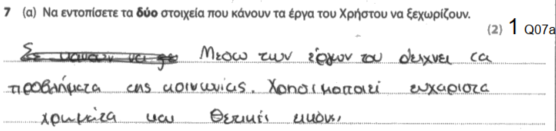 7 (a) Να εντοπίσετε τα δύο στοιχεία που κάνουν τα έργα του Χρήστου να ξεχωρίζουν.
(2) 1 Q07a
Μεσω των έργων του δειχνει τα
προβλήματα της κοινωνίας. Χρησιμοποιεί ευχαριστα
χρωμάτα και θετικές